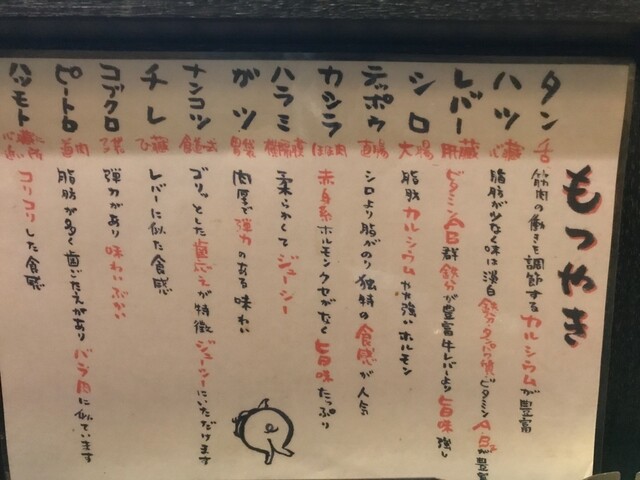 もつやき
タン 舌 筋肉の働きを調節するカルシウムが豊富
ハツ 心臓 脂肪が少なく味は淡白 鉄分タンパク質ビタミンA、B2が豊富
レバー 肝臓 ビタミンAB群鉄分が豊富牛レバーより旨味強し
シロ 大腸 脂肪カルシウムやや強いホルモン
テッポウ 直腸 シロより脂がのり独特の食感が人気
カシラ ほほ肉 赤身系ホルモンクセがなし旨味たっぷり
ハラミ 横隔膜 柔らかくてジューシー
ガツ 胃袋 肉厚で弾力のある味わい
ナンコツ 食道 ゴリッとした歯応えが特徴ジューシーにいただけます
チレ ひ臓 レバーに似た食感
コブクロ 子袋 弾力があり味わいぶかい
ピートロ 首肉 脂肪が多く歯ごたえがありバラ肉に似ています
ハツモト コリコリした食感